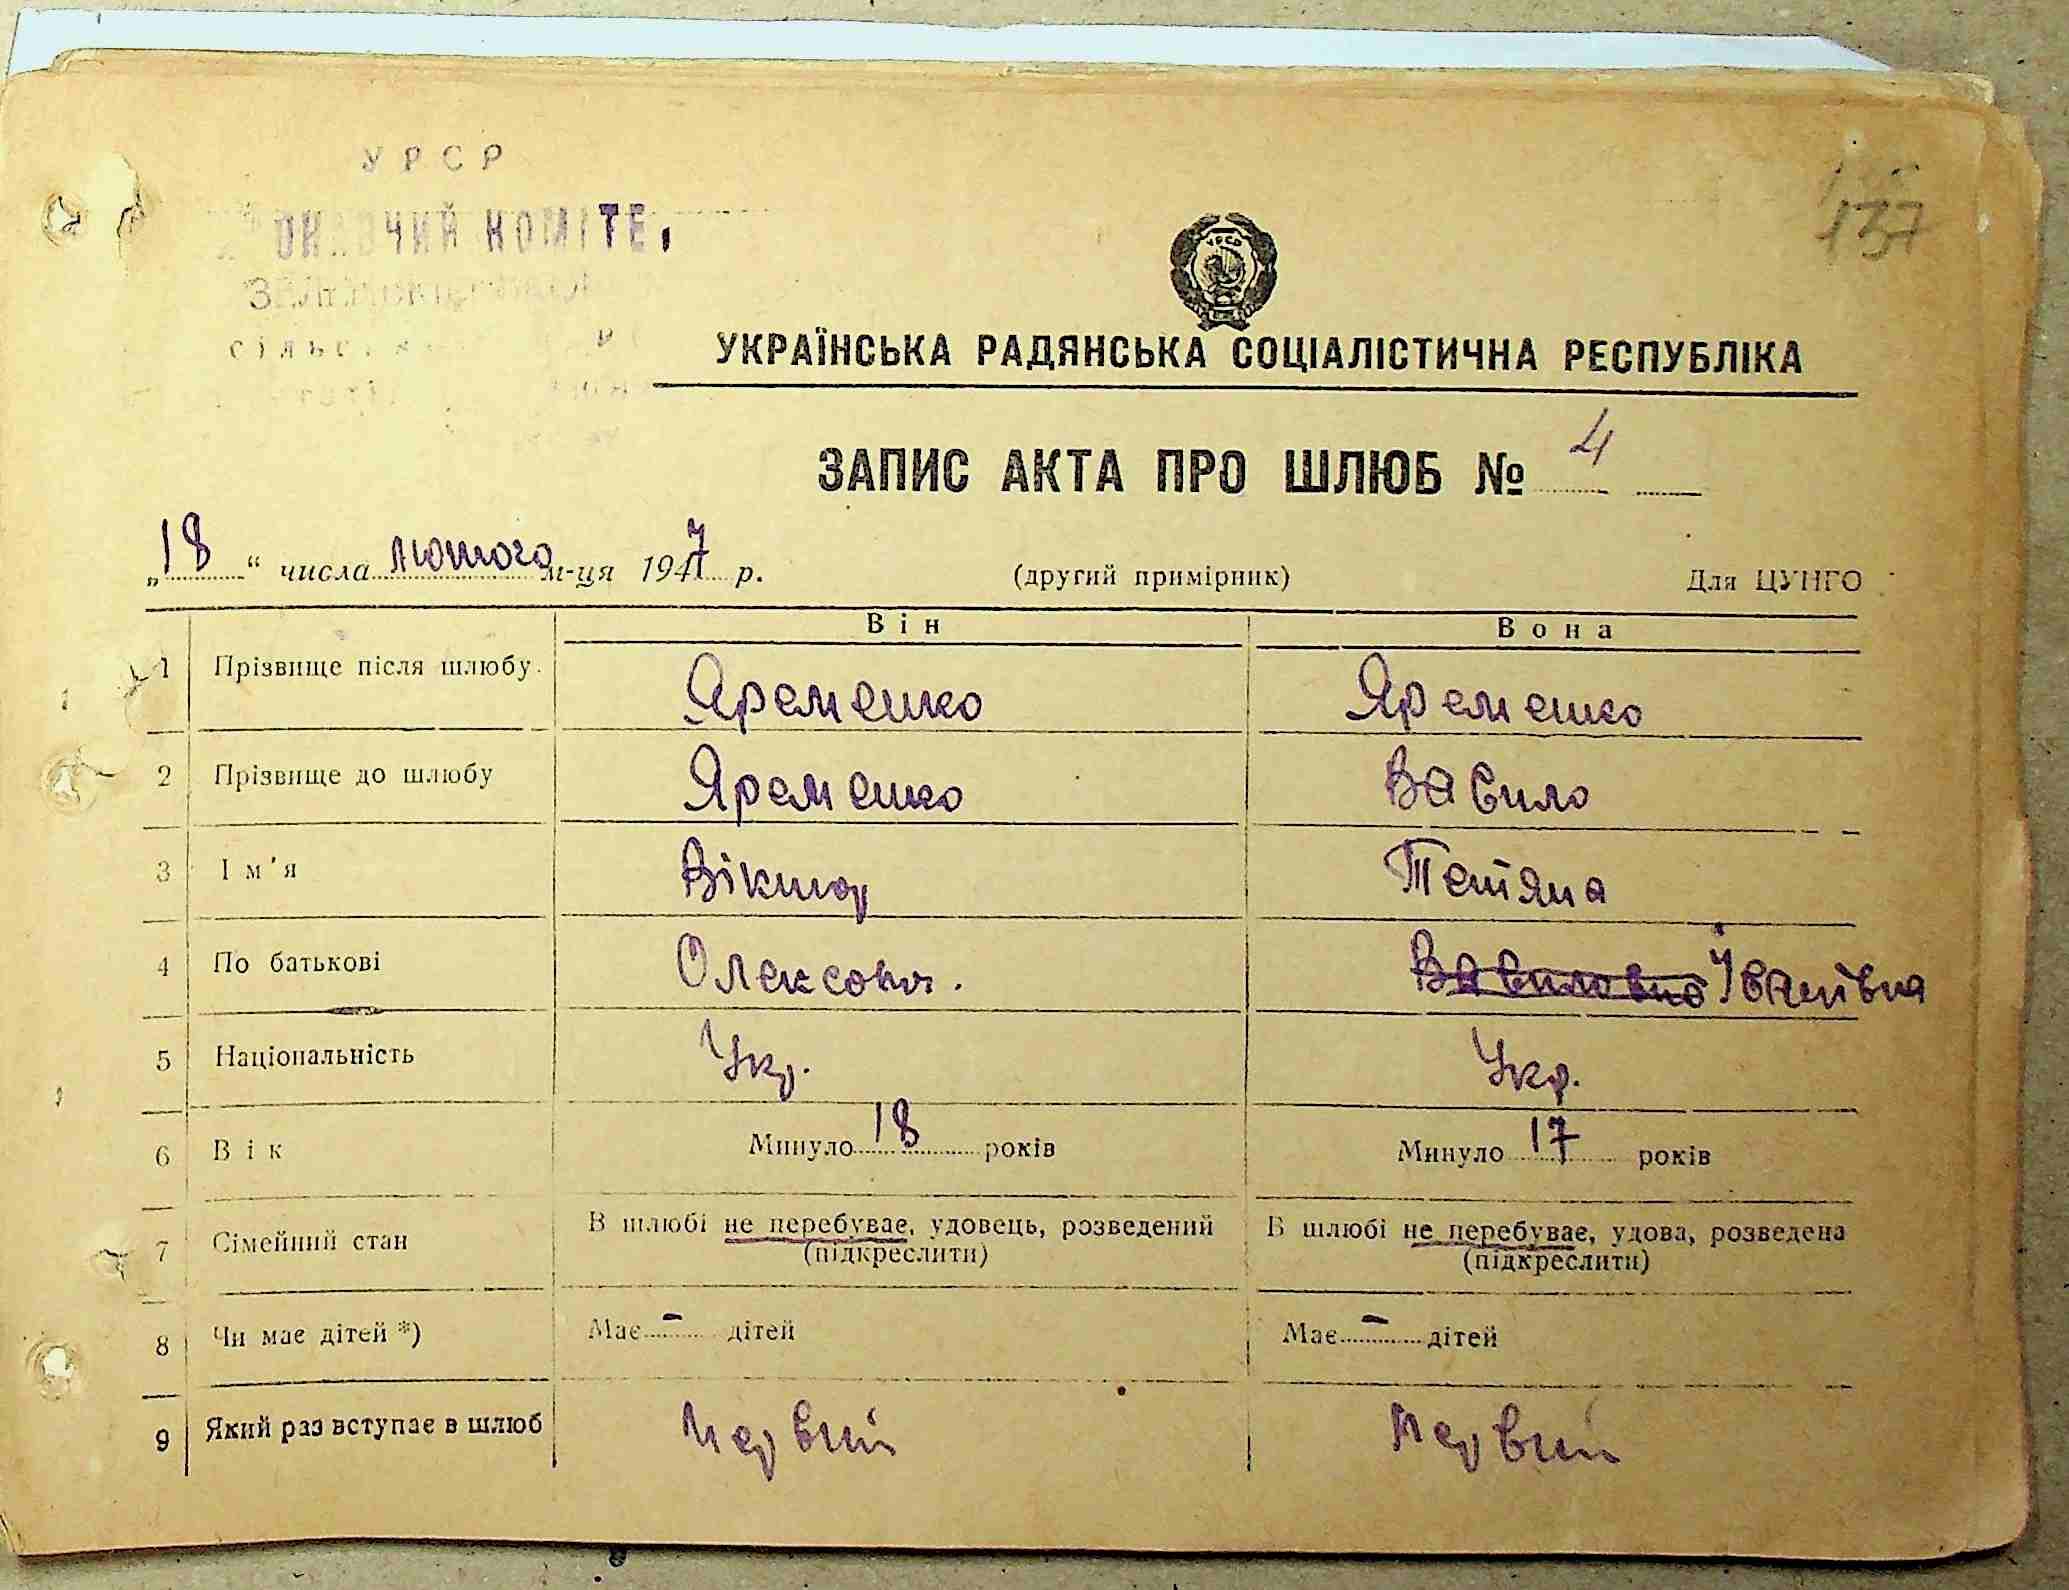 УРСР
КОМІТЕ
137
УРСР
УКРАЇНСЬКА РАДЯНСЬКА СОЦІАЛІСТИЧНА РЕСПУБЛІКА
ЗАПИС АКТА ПРО ШЛЮБ № 4
„18“ числа лютого м-ця 1947 р. (другий примірник) Для ЦУНГО
Він Вона
1 Прізвище після шлюбу. Яременко Яременко
2 Прізвище до шлюбу Яременко Васило
3 Ім'я Віктор Тетяна
4 По батькові Олексович. Василовна Іванівна
5 Національність Укр. Укр.
6 Вік Минуло 18 років Минуло 17 років
7 Сімейний стан В шлюбі не перебуває, удовець, розведений В шлюбі не перебуває, удова, розведена
(підкреслити) (підкреслити)
8 Чи має дітей *) Має - дітей Має - дітей
9 Який раз вступає в шлюб Первий Первий